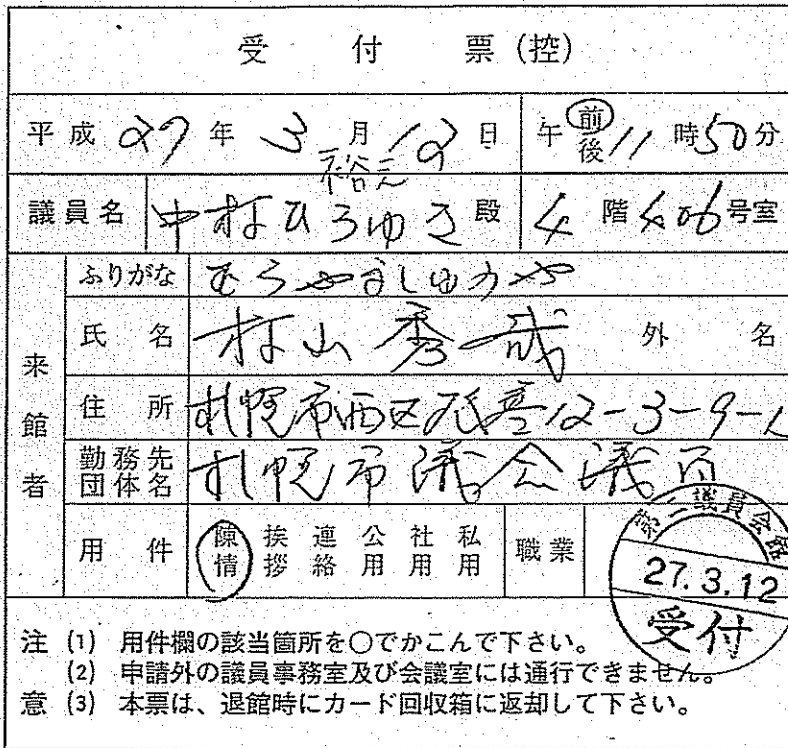 受付票(控)
平成 27 年 3 月 12 日 午前後 11 時 50 分
裕之
議員名 中村ひろゆき 殿 4 階 406 号室
来館者
ふりがな むらやましゅうや
氏名 村山秀哉 外 名
住所 札幌市西区 12-3-9-1
勤務先団体名 札幌市議会議員
用件 陳情 挨拶 連絡 公用 社用 私用 職業
第二議員会館
27.3.12
受付
注意 (1) 用件欄の該当箇所を○でかこんで下さい。
(2) 申請外の議員事務室及び会議室には通行できません。
(3) 本票は、退館時にカード回収箱に返却して下さい。